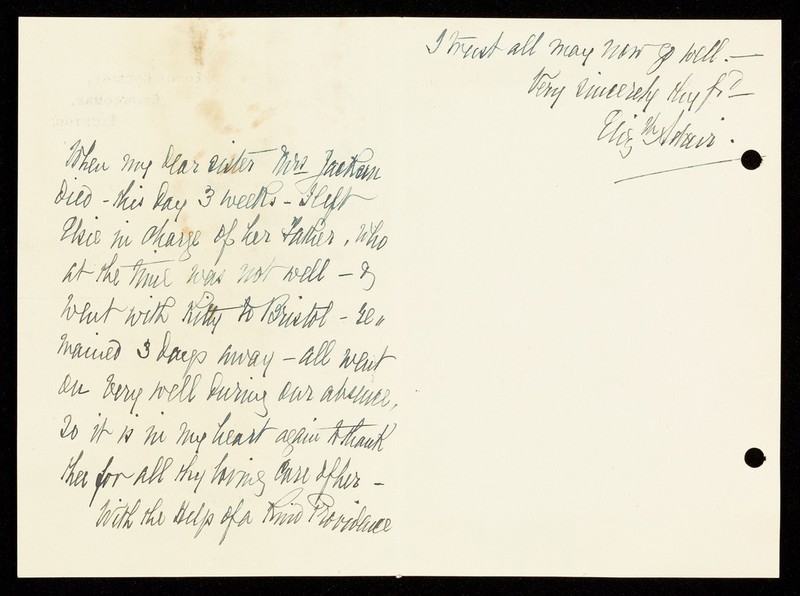 When my dear sister Mrs Jackson
died - this day 3 weeks - I left
Elsie in charge of her Father, who
at the time was not well - &
went with Kitty to Bristol - re„
mained 3 days away - all went
on very well during our absence,
So it is in my heart again to thank
thee for all thy loving care of her -
With the Help of a Kind Providence
I trust all may now go well. —
Very sincerely thy frd —
Elizth Adair.